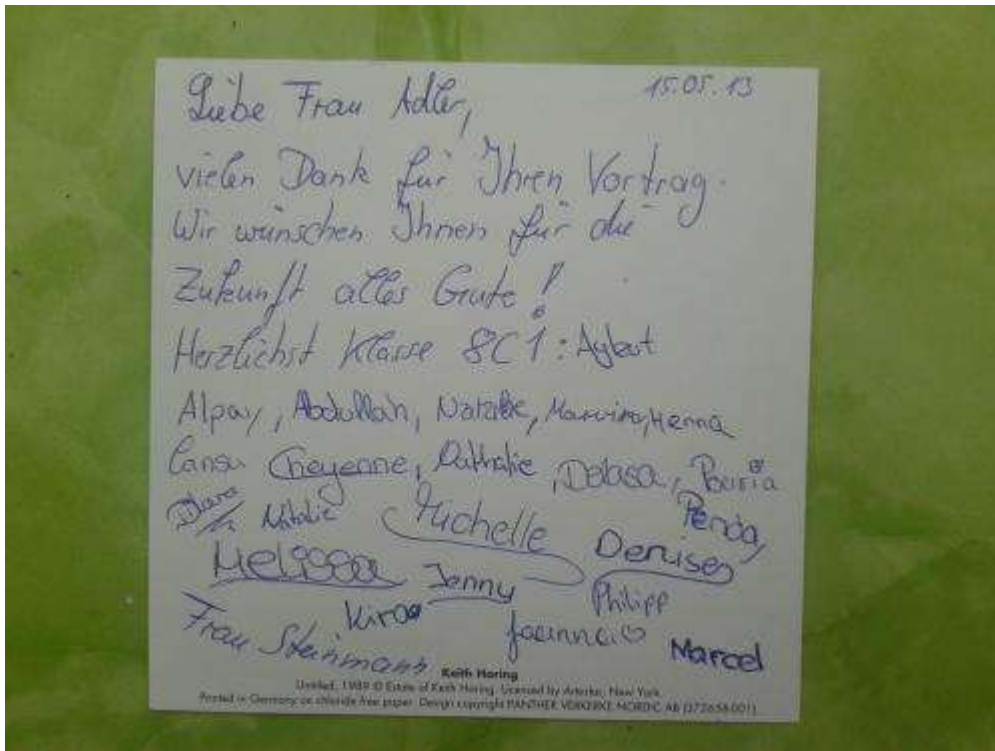 15.05.13
Liebe Frau Adler,
vielen Dank für Ihren Vortrag.
Wir wünschen Ihnen für die
Zukunft alles Gute!
Herzlichst Klasse 8C1: 
Alpay, Abdullah, Natalie, Henna
Cansu Cheyenne, Nathalie, Pouria
Natalie Michelle Penda,
Melissa Jenny Denise
Kira Philipp
Frau Steinmann Joanna♡ Marcel
Keith Haring
Untitled, 1989 © Estate of Keith Haring. Licensed by Artestar, New York
Printed in Germany on chloride free paper. Design copyright PANTHER VERKERKE NORDIC AB (372658-001)